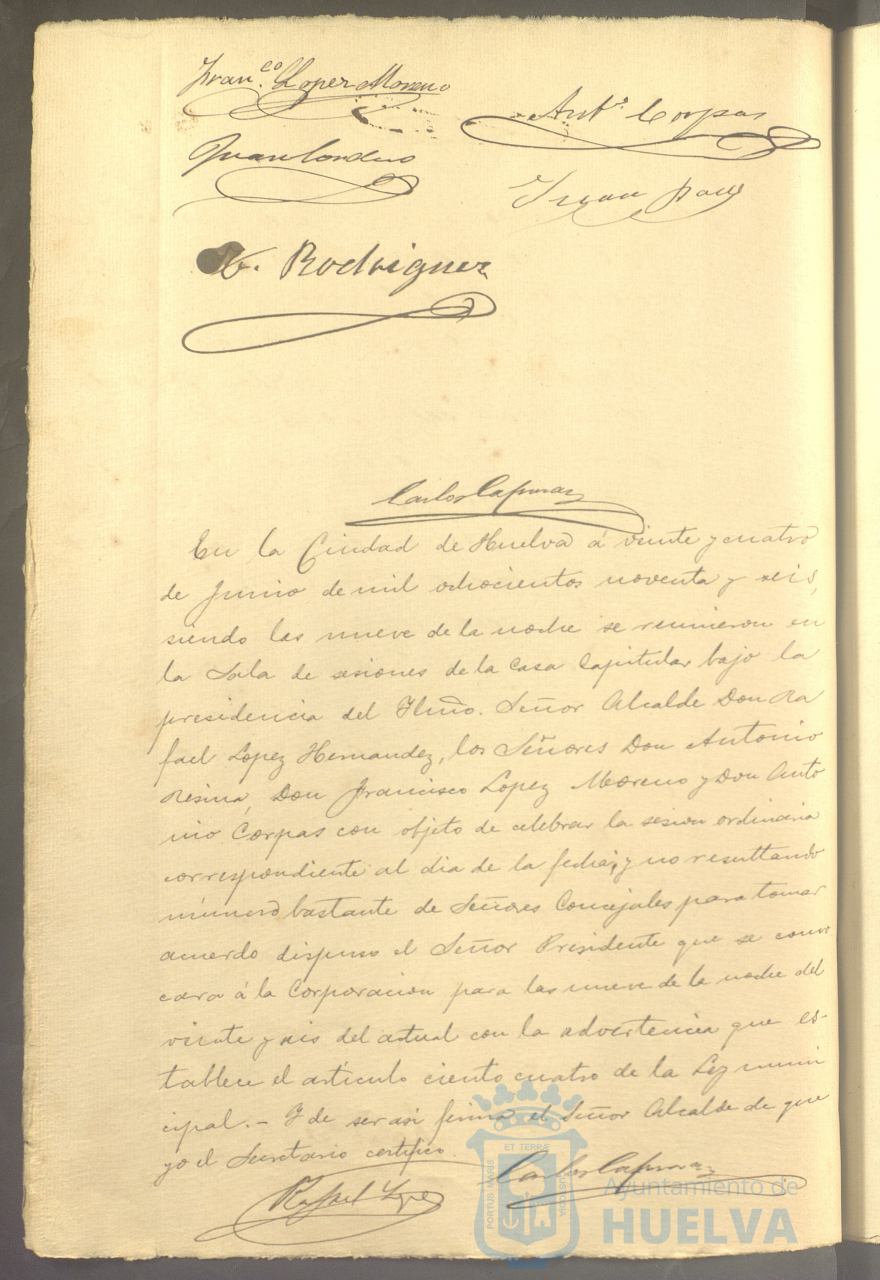 Fran.co Lopez Moreno
Ant.o Corpas
Juan Cordero
Juan
Rodriguez
Carlos
En la Ciudad de Huelva á veinte y cuatro
de Junio de mil ochocientos noventa y seis,
siendo las nueve de la noche se reunieron en
la Sala de sesiones de la Casa Capitular bajo la
presidencia del Yltmo. Señor Alcalde Don Ra
fael Lopez Hernandez, los Señores Don Antonio
Resina, Don Francisco Lopez Moreno y Don Anto
nio Corpas con objeto de celebrar la sesion ordinaria
correspondiente al dia de la fecha; y no resultando
número bastante de Señores Concejales para tomar
acuerdo dispuso el Señor Presidente que se convo
cara á la Corporacion para las nueve de la noche del
veinte y seis del actual con la advertencia que es-
tablece el artículo ciento cuatro de la Ley muni
cipal.- Y de ser asi firma el Señor Alcalde de que
yo el Secretario certifico.
Rafael Lopez
Carlos
ET TERRÆ
PORTUS MARIS
CUSTODIA
Ayuntamiento de
HUELVA